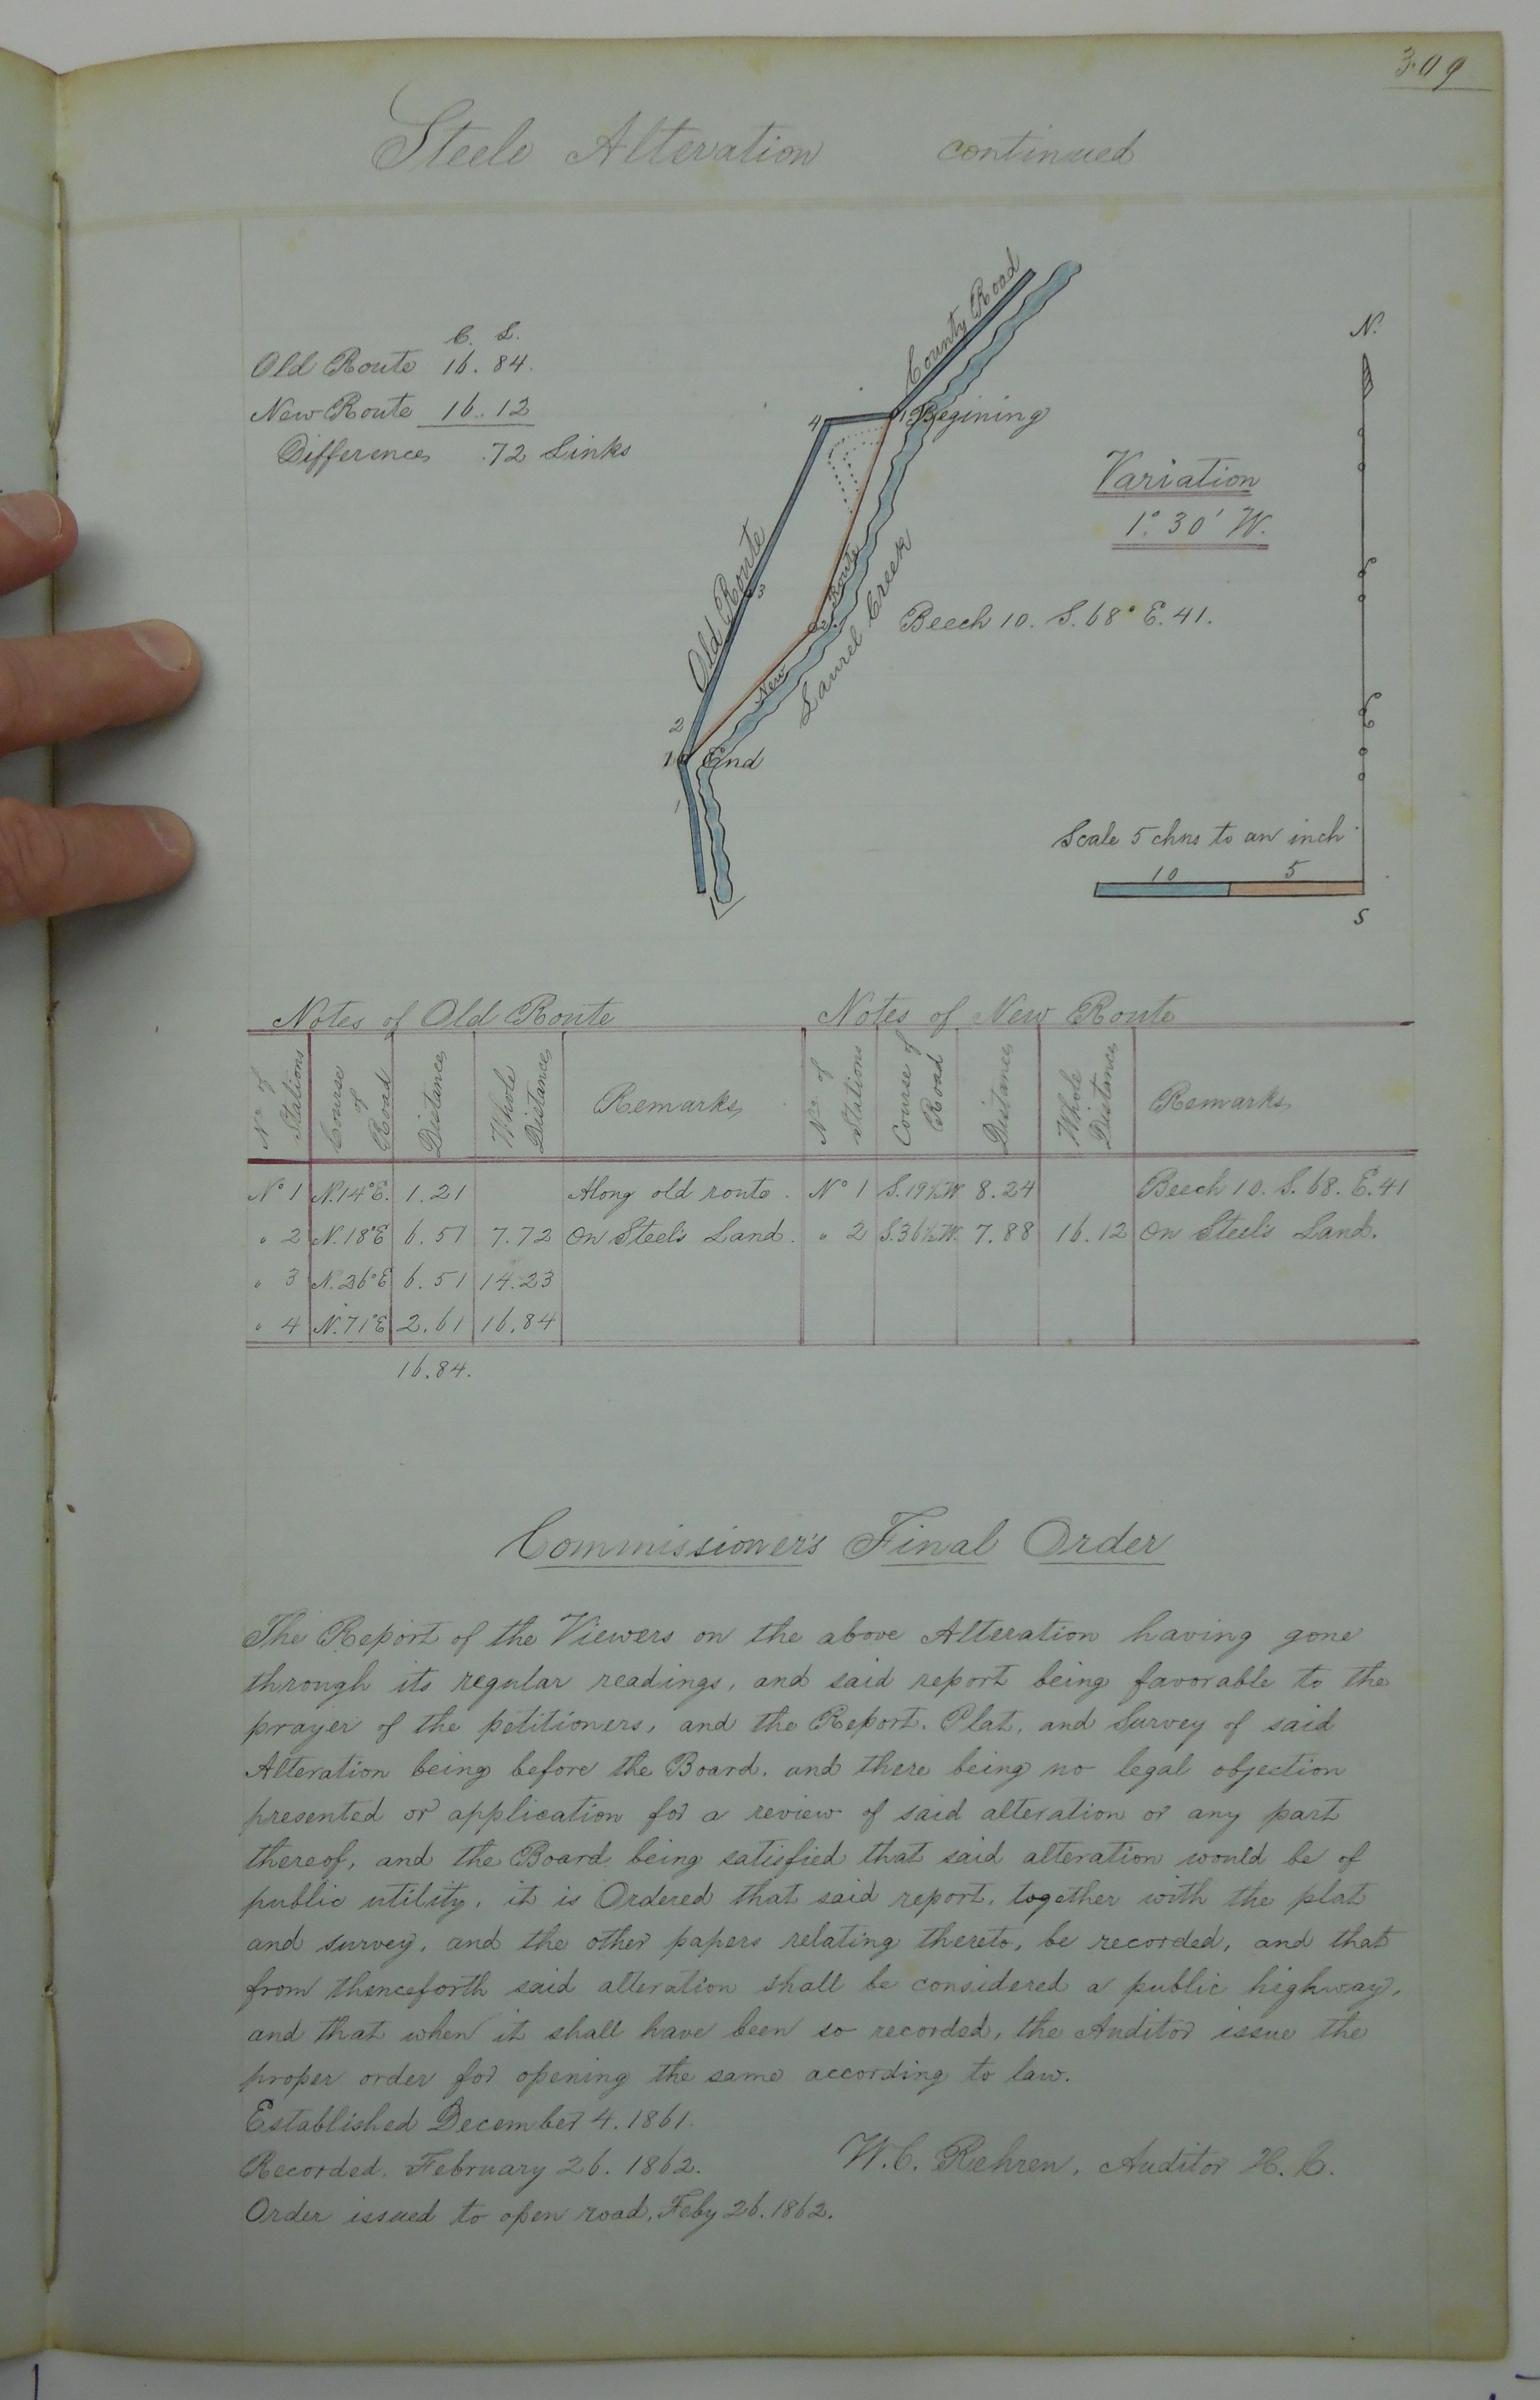 309
Steele Alteration continued
C. L.
Old Route 16. 84.
New Route 16. 12
Difference .72 Links
County Road
4
1 Begining
Old Route
3
New Route
2
Laurel Creek
Beech 10. S. 68° E. 41.
2
1 End
1
N.
Variation
1° 30' W.
Scale 5 chns to an inch
10 5
S
Notes of Old Route Notes of New Route
No of Stations Course of Road Distance Whole Distance Remarks No of Stations Course of Road Distance Whole Distance Remarks
No 1 N. 14° E. 1.21 Along old route. No 1 S. 19½ W 8.24 Beech 10. S. 68. E. 41
" 2 N. 18° E 6.51 7.72 On Steel's Land. " 2 S. 36½ W. 7.88 16.12 On Steel's Land.
" 3 N. 26° E 6.51 14.23
" 4 N. 71° E 2.61 16.84
16.84.
Commissioner's Final Order
The Report of the Viewers on the above Alteration having gone
through its regular readings, and said report being favorable to the
prayer of the petitioners, and the Report. Plat, and Survey of said
Alteration being before the Board. and there being no legal objection
presented or application for a review of said alteration or any part
thereof, and the Board being satisfied that said alteration would be of
public utility, it is Ordered that said report, together with the plat
and survey, and the other papers relating thereto, be recorded, and that
from thenceforth said alteration shall be considered a public highway,
and that when it shall have been so recorded, the Auditor issue the
proper order for opening the same according to law.
Established December 4. 1861.
Recorded. February 26. 1862. W. C. Rehren, Auditor H. C.
Order issued to open road, Feby 26. 1862.